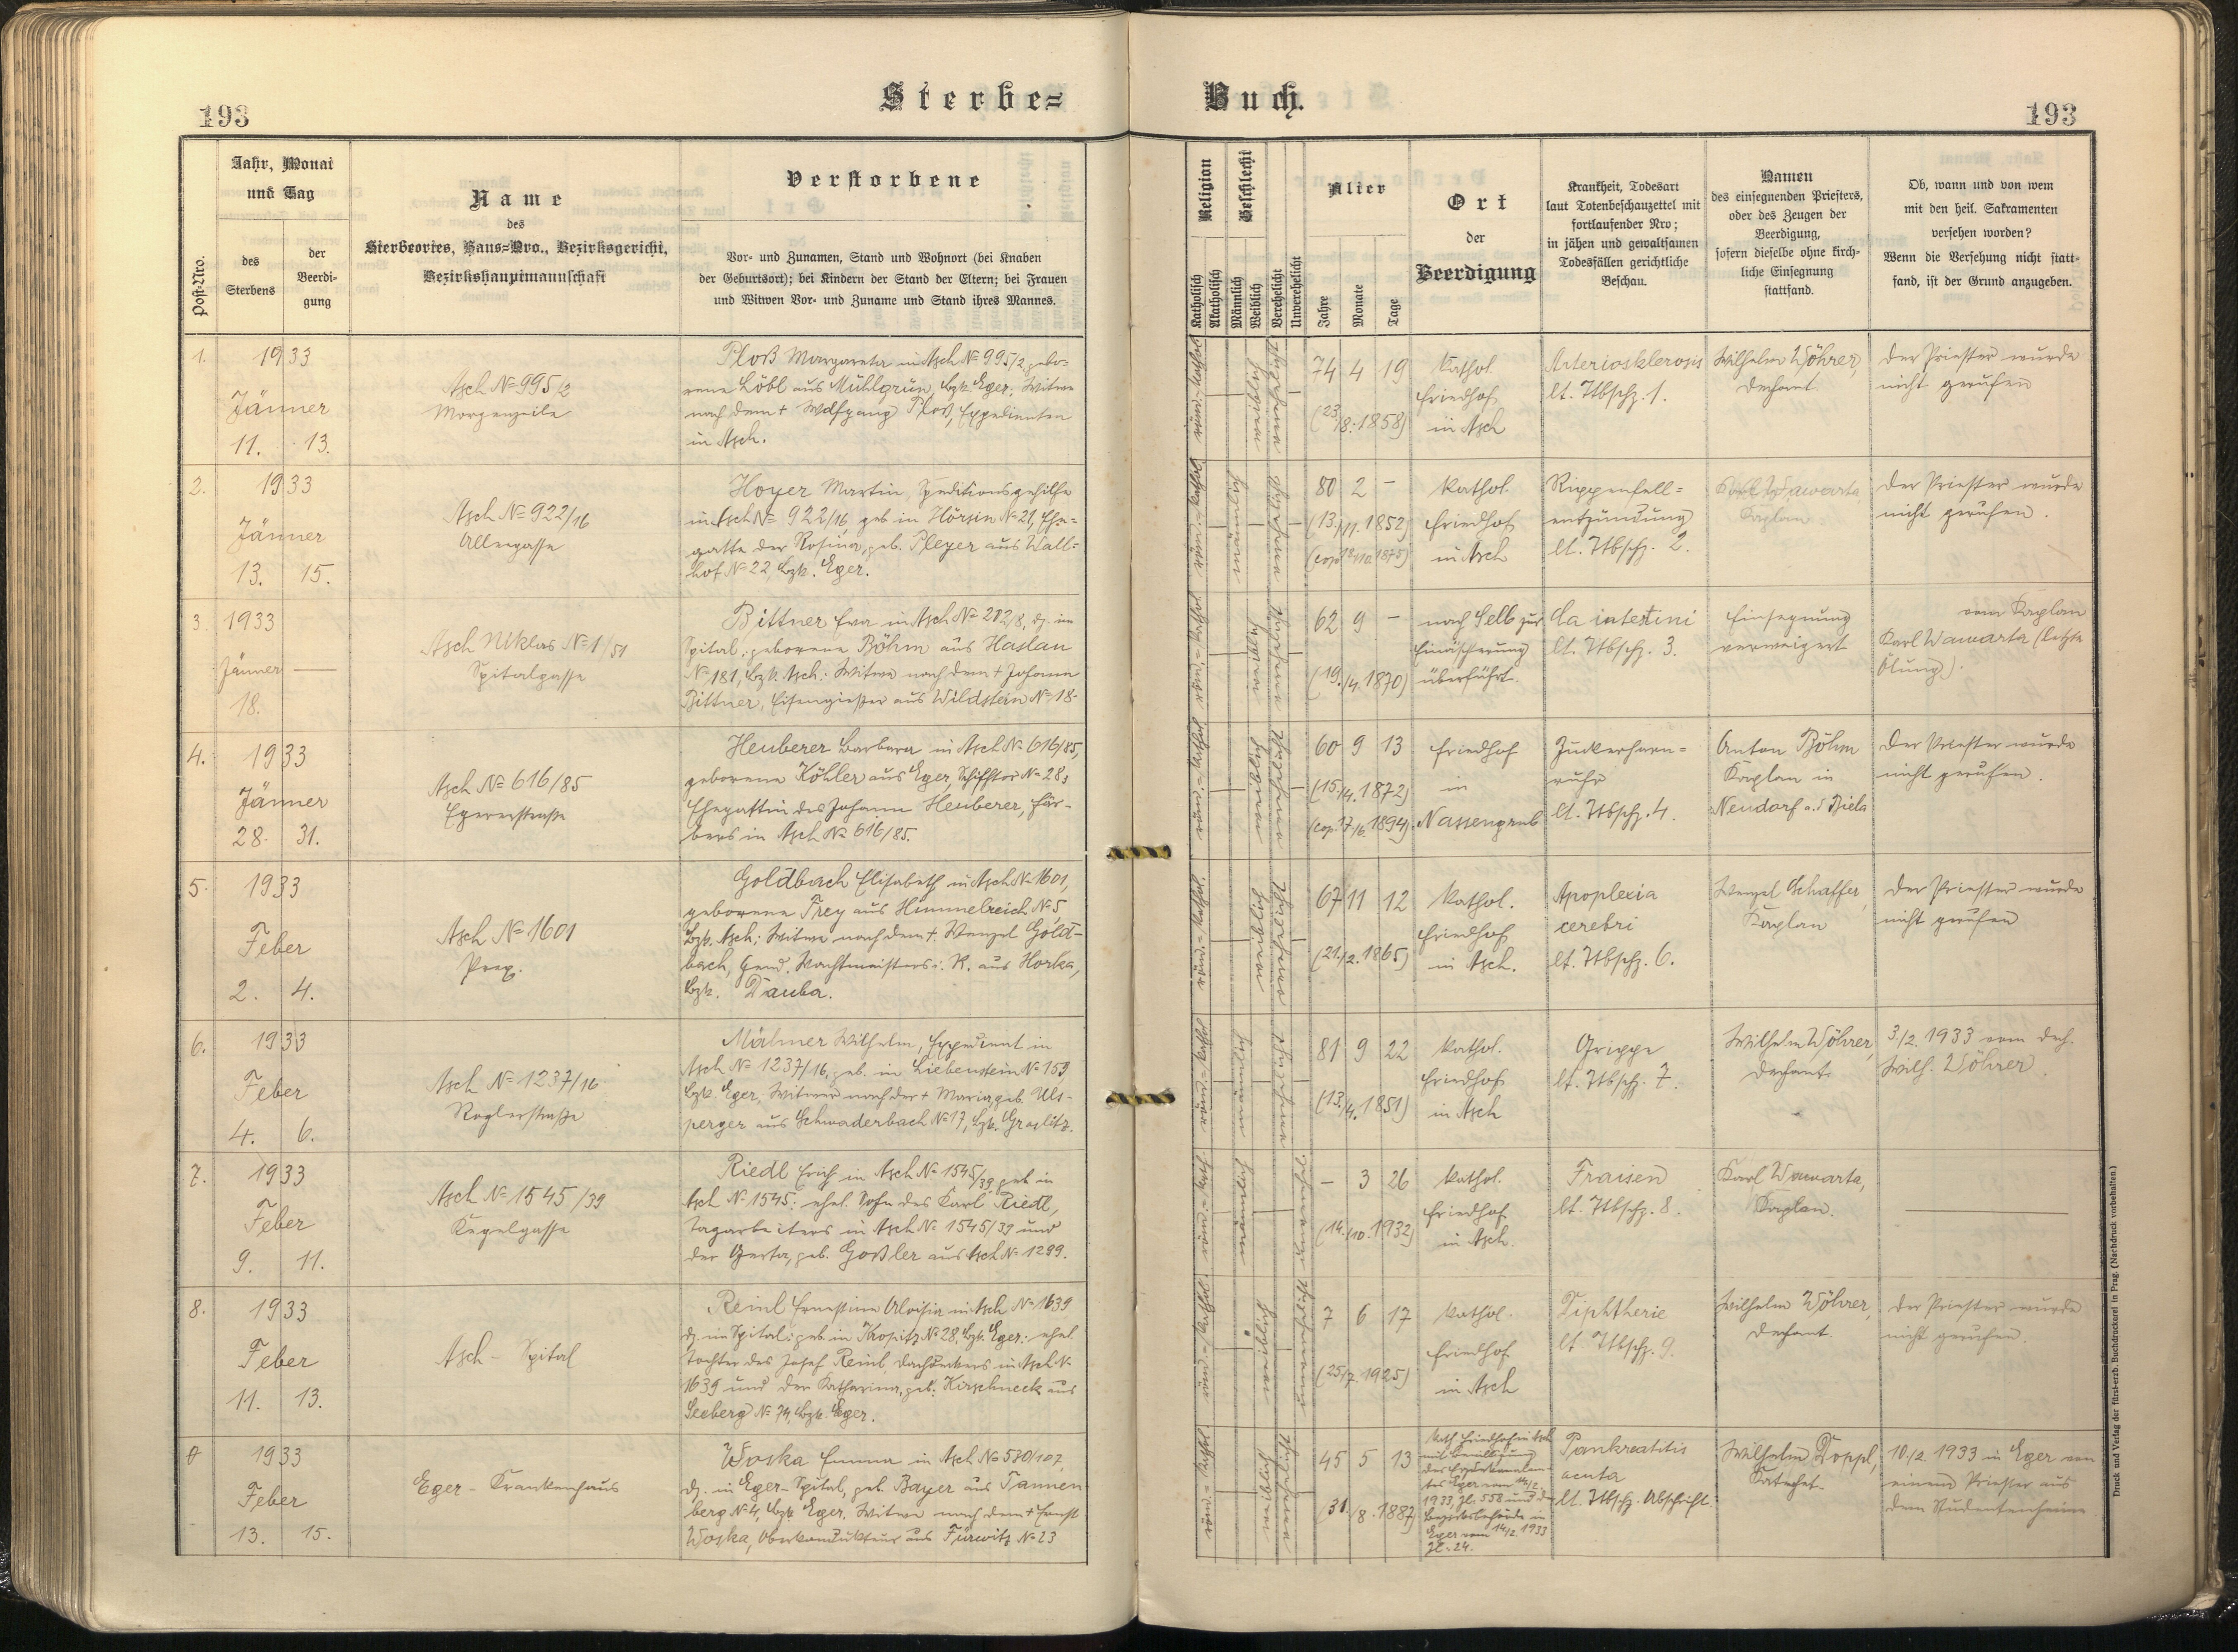 193
Sterbe=
Buch.
193
Post-Nro.
Jahr, Monat
und Tag
des
Sterbens
der
Beerdi-
gung
Name
des
Sterbeortes, Haus=Nro., Bezirksgericht,
Bezirkshauptmannschaft
Verstorbene
Vor- und Zunamen, Stand und Wohnort (bei Knaben
der Geburtsort); bei Kindern der Stand der Eltern; bei Frauen
und Witwen Vor- und Zuname und Stand ihres Mannes.
Religion
Katholisch
Akatholisch
Geschlecht
Männlich
Weiblich
Verehelicht
Unverehelicht
Alter
Jahre
Monate
Tage
Ort
der
Beerdigung
Krankheit, Todesart
laut Totenbeschauzettel mit
fortlaufender Nro;
in jähen und gewaltsamen
Todesfällen gerichtliche
Beschau.
Namen
des einsegnenden Priesters,
oder des Zeugen der
Beerdigung,
sofern dieselbe ohne kirch-
liche Einsegnung
stattfand.
Ob, wann und von wem
mit den heil. Sakramenten
versehen worden?
Wenn die Versehung nicht statt-
fand, ist der Grund anzugeben.
1.
1933
Jänner
11. 13.
Asch № 995/2
Morgenzeile
Ploß Margareta in Asch № 995/2, gebo-
rene Löbl aus Mühlgrün, Bzk. Eger; Witwe
nach dem + Wolfgang Ploß, Expedienten
in Asch.
74 4 19
(23./8. 1858)
Kathol.
Friedhof
in Asch
Arteriosklerosis
lt. Ttbschz. 1.
Wilhelm Wöhrer,
Dechant.
Der Priester wurde
nicht gerufen
2.
1933
Jänner
13. 15.
Asch № 922/16
Alleegasse
Hoyer Martin, Speditionsgehilfe
in Asch № 922/16, geb. in Hörsin № 21, Ehe-
gatte der Rosina, geb. Pleyer aus Wall-
hof № 22, Bzk. Eger.
80 2 -
(13./11. 1852)
Kathol.
Friedhof
in Asch
Rippenfell=
entzündung
lt. Ttbschz. 2.
Karl Wawarta
Kaplan
Der Priester wurde
nicht gerufen.
3.
1933
Jänner
18.
Asch Niklas № 1/51
Spitalgasse
Bittner Eva in Asch № 212/8, dz. im
Spital; geborene Böhm aus Haslau
№ 181, Bzk. Asch; Witwe nach dem + Johann
Bittner, Eisengießer aus Wildstein № 18.
62 9 -
(19./4. 1870)
nach Selb zur
Einäscherung
überführt.
Ca intestini
lt. Ttbschz. 3.
Einsegnung
verweigert
vom Kaplan
Karl Wawarta (letzte
Ölung).
4.
1933
Jänner
28. 31.
Asch № 616/85
Egererstraße
Heuberer Barbara in Asch № 616/85,
geborene Köhler aus Eger, Schifftor № 28;
Ehegattin des Johann Heuberer, Fär-
bers in Asch № 616/85.
60 9 13
(15./4. 1872)
(cop. 17/6. 1894)
Friedhof
in
Nassengrub
Zuckerharn=
ruhr
lt. Ttbschz. 4.
Anton Böhm
Kaplan in
Neudorf a. d. Biela
Der Priester wurde
nicht gerufen.
5.
1933
Feber
2. 4.
Asch № 1601
Prex.
Goldbach Elisabeth in Asch № 1601,
geborene Frey aus Himmelreich № 5,
Bzk. Asch; Witwe nach dem + Wenzel Gold-
bach, Gend. Wachtmeisters i. R. aus Horka,
Bzk. Dauba.
67 11 12
(21./2. 1865)
Kathol.
Friedhof
in Asch.
Apoplexia
cerebri
lt. Ttbschz. 6.
Wenzel Schaffer,
Kaplan
Der Priester wurde
nicht gerufen
6.
1933
Feber
4. 6.
Asch № 1237/16
Roglerstraße
Mähner Wilhelm, Expedient in
Asch № 1237/16, geb. in Liebenstein № 159
Bzk. Eger, Witwer nach der + Maria geb. Uls-
perger aus Schwaderbach № 17, Bzk. Graslitz.
81 9 22
(13./4. 1851)
Kathol.
Friedhof
in Asch
Grippe
lt. Ttbschz. 7.
Wilhelm Wöhrer,
Dechant.
3./2. 1933 vom Dech.
Wilh. Wöhrer.
7.
1933
Feber
9. 11.
Asch № 1545/39
Kegelgasse
Riedl Erich in Asch № 1545/39 geb. in
Asch № 1545; ehel. Sohn des Karl Riedl,
Tagarbeiters in Asch № 1545/39 und
der Gerta, geb. Goßler aus Asch № 1299.
- 3 26
(14./10. 1932)
Kathol.
Friedhof
in Asch.
Fraisen
lt. Ttbschz. 8.
Karl Wawarta,
Kaplan.
8.
1933
Feber
11. 13.
Asch - Spital
Reinl Ernestine Aloisia in Asch № 1639
dz. im Spital; geb. in Kropitz № 28, Bzk. Eger; ehel.
Tochter des Josef Reinl Dachdeckers in Asch №
1639 und der Katharina, geb. Kirschneck aus
Seeberg № 74, Bzk. Eger.
7 6 17
(25/7. 1925)
Kathol.
Friedhof
in Asch
Diphtherie
lt. Ttbschz. 9.
Wilhelm Wöhrer,
Dechant.
Der Priester wurde
nicht gerufen.
1933
Feber
13. 15.
Eger - Krankenhaus
Woska Emma in Asch № 530/107,
dz. in Eger-Spital, geb. Bayer aus Tannen
berg № 4, Bzk. Eger, Witwe nach dem + Ernst
Woska, Oberkondukteur aus Fürwitz № 23
45 5 13
(31./8. 1887)
Kath. Friedhof in Asch
mit Bewilligung
1933, Zl. 558 und d.
Bezirksbehörde in
Eger vom 14/2. 1933
Zl. 24.
Pankreatitis
acuta
lt. Ttbschz. Abschrift.
Wilhelm Doppl,
Katechet.
10./2. 1933 in Eger von
einem Priester aus
dem Studentenheime
Druck und Verlag der fürst-erzb. Buchdruckerei in Prag. (Nachdruck vorbehalten.)